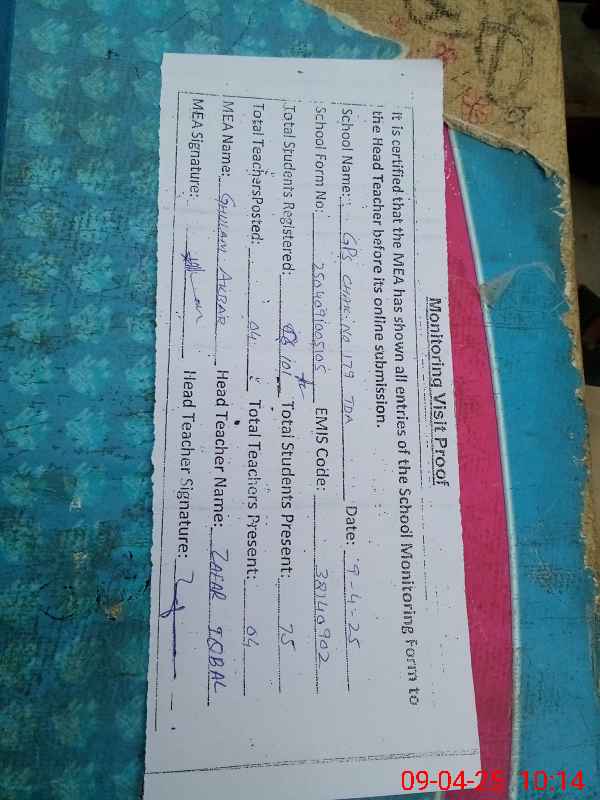 Monitoring Visit Proof
It is certified that the MEA has shown all entries of the School Monitoring Form to
the Head Teacher before its online submission.
School Name: GPS CHAK NO 179 TDA Date: 9-4-25
School Form No: 250409100505 EMIS Code: 38140902
Total Students Registered: 101 Total Students Present: 75
Total Teachers Posted: 04 Total Teachers Present: 04
MEA Name: GHULAM AKBAR Head Teacher Name: ZAFAR IQBAL
MEA Signature: Head Teacher Signature:
09-04-25 10:14